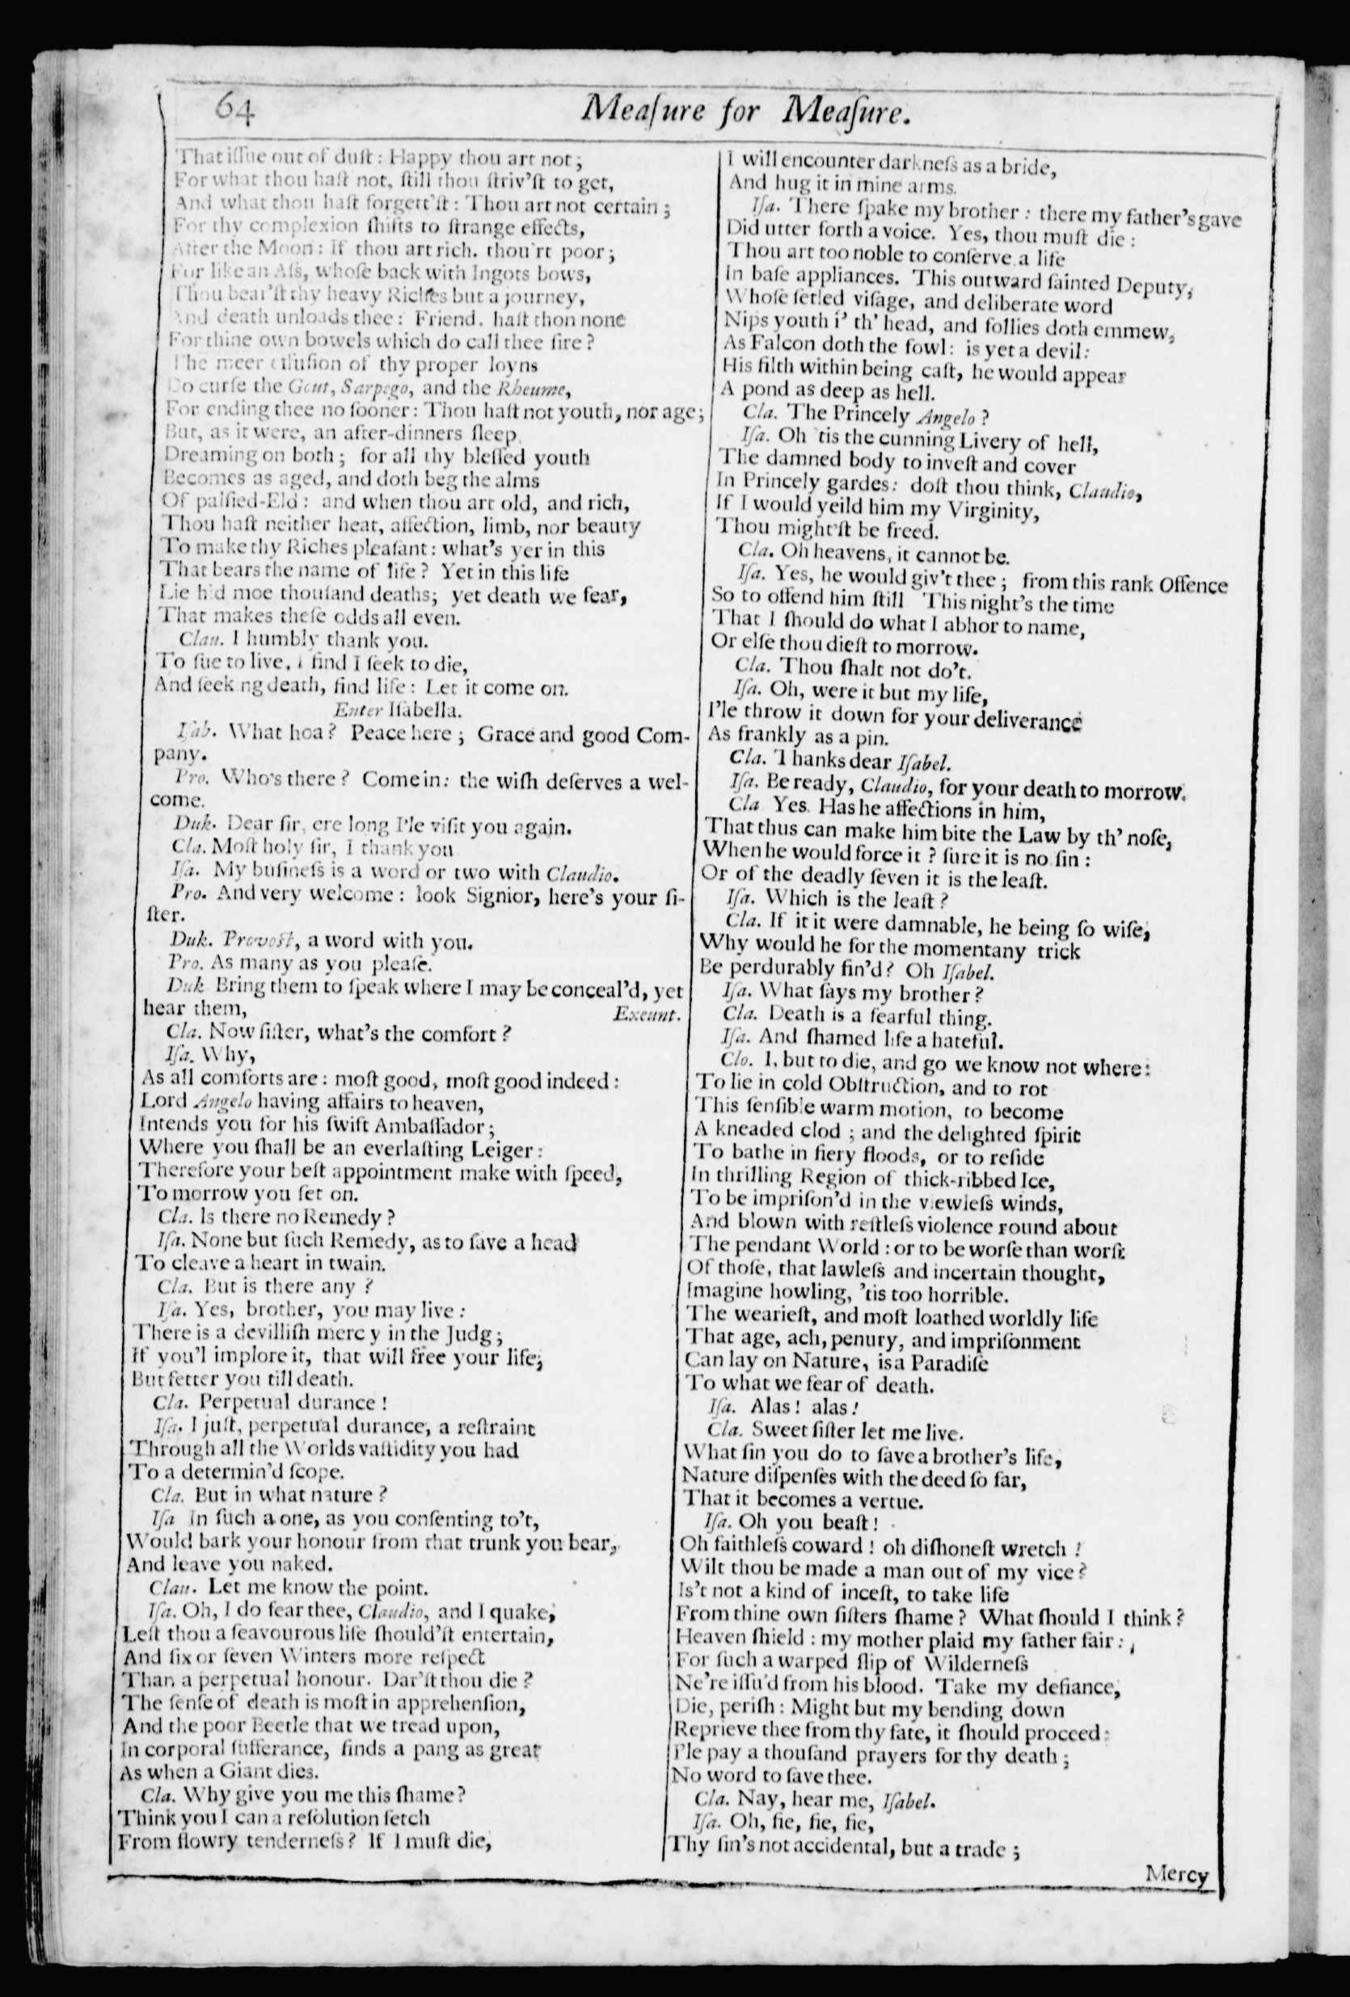 64
Meaſure for Meaſure.
That iſſue out of duſt: Happy thou art not;
For what thou haſt not, ſtill thou ſtriv'ſt to get,
And what thou haſt forgett'ſt: Thou art not certain;
For thy complexion ſhifts to ſtrange effects,
After the Moon: If thou art rich. thou'rt poor;
For like an Aſs, whoſe back with Ingots bows,
Thou bear'ſt thy heavy Riches but a journey,
And death unloads thee: Friend. haſt thon none
For thine own bowels which do call thee fire?
The meer effuſion of thy proper loyns
Do curſe the Gout, Sarpego, and the Rheume,
For ending thee no ſooner: Thou haſt not youth, nor age;
But, as it were, an after-dinners ſleep
Dreaming on both; for all thy bleſſed youth
Becomes as aged, and doth beg the alms
Of palſied-Eld: and when thou art old, and rich,
Thou haſt neither heat, affection, limb, nor beauty
To make thy Riches pleaſant: what's yer in this
That bears the name of life? Yet in this life
Lie hid moe thouſand deaths; yet death we fear,
That makes theſe odds all even.
Clau. I humbly thank you.
To ſue to live, I find I ſeek to die,
And ſeeking death, find life: Let it come on.
Enter Iſabella.
Iſab. What hoa? Peace here; Grace and good Com-
pany.
Pro. Who's there? Come in: the wiſh deſerves a wel-
come.
Duk. Dear ſir, ere long I'le viſit you again.
Cla. Moſt holy ſir, I thank you
Iſa. My buſineſs is a word or two with Claudio.
Pro. And very welcome: look Signior, here's your ſi-
ſter.
Duk. Provoſt, a word with you.
Pro. As many as you pleaſe.
Duk Bring them to ſpeak where I may be conceal'd, yet
hear them, Exeunt.
Cla. Now ſiſter, what's the comfort?
Iſa. Why,
As all comforts are: moſt good, moſt good indeed:
Lord Angelo having affairs to heaven,
Intends you for his ſwift Ambaſſador;
Where you ſhall be an everlaſting Leiger:
Therefore your beſt appointment make with ſpeed,
To morrow you ſet on.
Cla. Is there no Remedy?
Iſa. None but ſuch Remedy, as to ſave a head
To cleave a heart in twain.
Cla. But is there any?
Iſa. Yes, brother, you may live:
There is a devilliſh mercy in the Judg;
If you'l implore it, that will free your life;
But fetter you till death.
Cla. Perpetual durance!
Iſa. I juſt, perpetual durance, a reſtraint
Through all the Worlds vaſtidity you had
To a determin'd ſcope.
Cla. But in what nature?
Iſa In ſuch a one, as you conſenting to't,
Would bark your honour from that trunk you bear,
And leave you naked.
Clau. Let me know the point.
Iſa. Oh, I do fear thee, Claudio, and I quake,
Leſt thou a feavourous life ſhould'ſt entertain,
And ſix or ſeven Winters more reſpect
Than a perpetual honour. Dar'ſt thou die?
The ſenſe of death is moſt in apprehenſion,
And the poor Beetle that we tread upon,
In corporal ſufferance, finds a pang as great
As when a Giant dies.
Cla. Why give you me this ſhame?
Think you I can a reſolution fetch
From flowry tenderneſs? If I muſt die,
I will encounter darkneſs as a bride,
And hug it in mine arms.
Iſa. There ſpake my brother: there my father's gave
Did utter forth a voice. Yes, thou muſt die:
Thou art too noble to conſerve a life
In baſe appliances. This outward ſainted Deputy,
Whoſe ſetled viſage, and deliberate word
Nips youth i' th' head, and follies doth emmew,
As Falcon doth the fowl: is yet a devil:
His filth within being caſt, he would appear
A pond as deep as hell.
Cla. The Princely Angelo?
Iſa. Oh 'tis the cunning Livery of hell,
The damned body to inveſt and cover
In Princely gardes: doſt thou think, Claudio,
If I would yeild him my Virginity,
Thou might'ſt be freed.
Cla. Oh heavens, it cannot be.
Iſa. Yes, he would giv't thee; from this rank Offence
So to offend him ſtill This night's the time
That I ſhould do what I abhor to name,
Or elſe thou dieſt to morrow.
Cla. Thou ſhalt not do't.
Iſa. Oh, were it but my life,
I'le throw it down for your deliverance
As frankly as a pin.
Cla. Thanks dear Iſabel.
Iſa. Be ready, Claudio, for your death to morrow.
Cla Yes. Has he affections in him,
That thus can make him bite the Law by th' noſe,
When he would force it? ſure it is no ſin:
Or of the deadly ſeven it is the leaſt.
Iſa. Which is the leaſt?
Cla. If it it were damnable, he being ſo wiſe,
Why would he for the momentany trick
Be perdurably fin'd? Oh Iſabel.
Iſa. What ſays my brother?
Cla. Death is a fearful thing.
Iſa. And ſhamed life a hateful.
Clo. I, but to die, and go we know not where:
To lie in cold Obſtruction, and to rot
This ſenſible warm motion, to become
A kneaded clod; and the delighted ſpirit
To bathe in fiery floods, or to reſide
In thrilling Region of thick-ribbed Ice,
To be impriſon'd in the viewleſs winds,
And blown with reſtleſs violence round about
The pendant World: or to be worſe than worſt
Of thoſe, that lawleſs and incertain thought,
Imagine howling, 'tis too horrible.
The wearieſt, and moſt loathed worldly life
That age, ach, penury, and impriſonment
Can lay on Nature, is a Paradiſe
To what we fear of death.
Iſa. Alas! alas!
Cla. Sweet ſiſter let me live.
What ſin you do to ſave a brother's life,
Nature diſpenſes with the deed ſo far,
That it becomes a vertue.
Iſa. Oh you beaſt!
Oh faithleſs coward! oh diſhoneſt wretch!
Wilt thou be made a man out of my vice?
Is't not a kind of inceſt, to take life
From thine own ſiſters ſhame? What ſhould I think?
Heaven ſhield: my mother plaid my father fair:
For ſuch a warped ſlip of Wilderneſs
Ne're iſſu'd from his blood. Take my defiance,
Die, periſh: Might but my bending down
Reprieve thee from thy fate, it ſhould proceed:
I'le pay a thouſand prayers for thy death;
No word to ſave thee.
Cla. Nay, hear me, Iſabel.
Iſa. Oh, fie, fie, fie,
Thy ſin's not accidental, but a trade;
Mercy